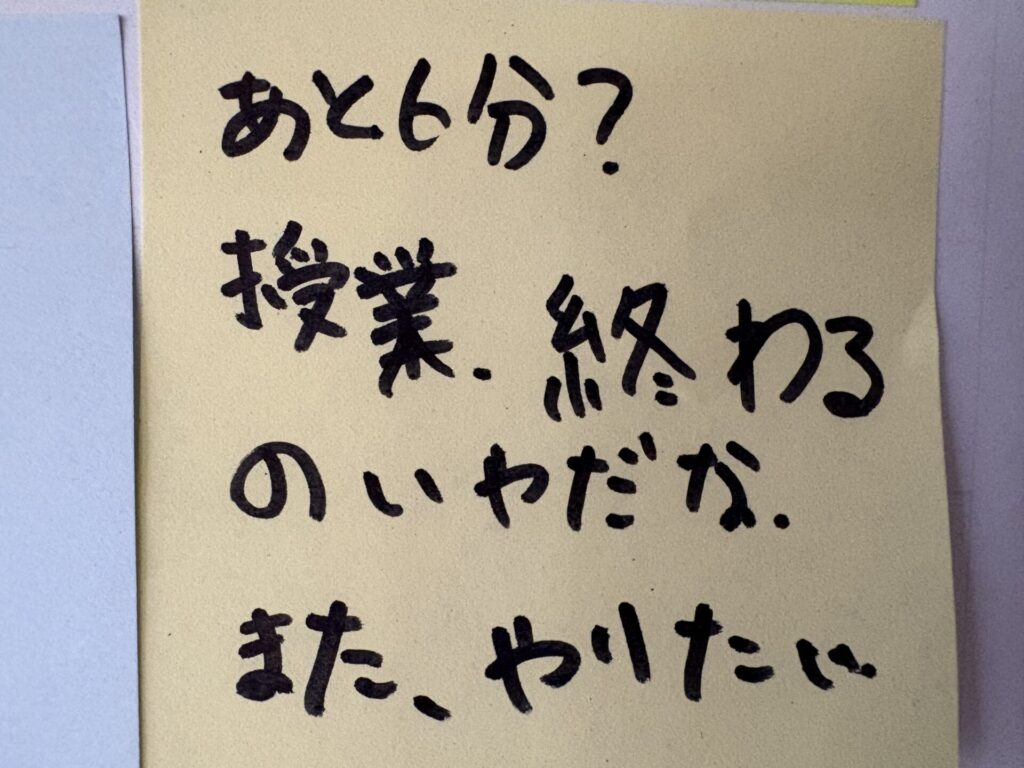 あと6分?
授業.終わる
のいやだな.
また、やりたい.